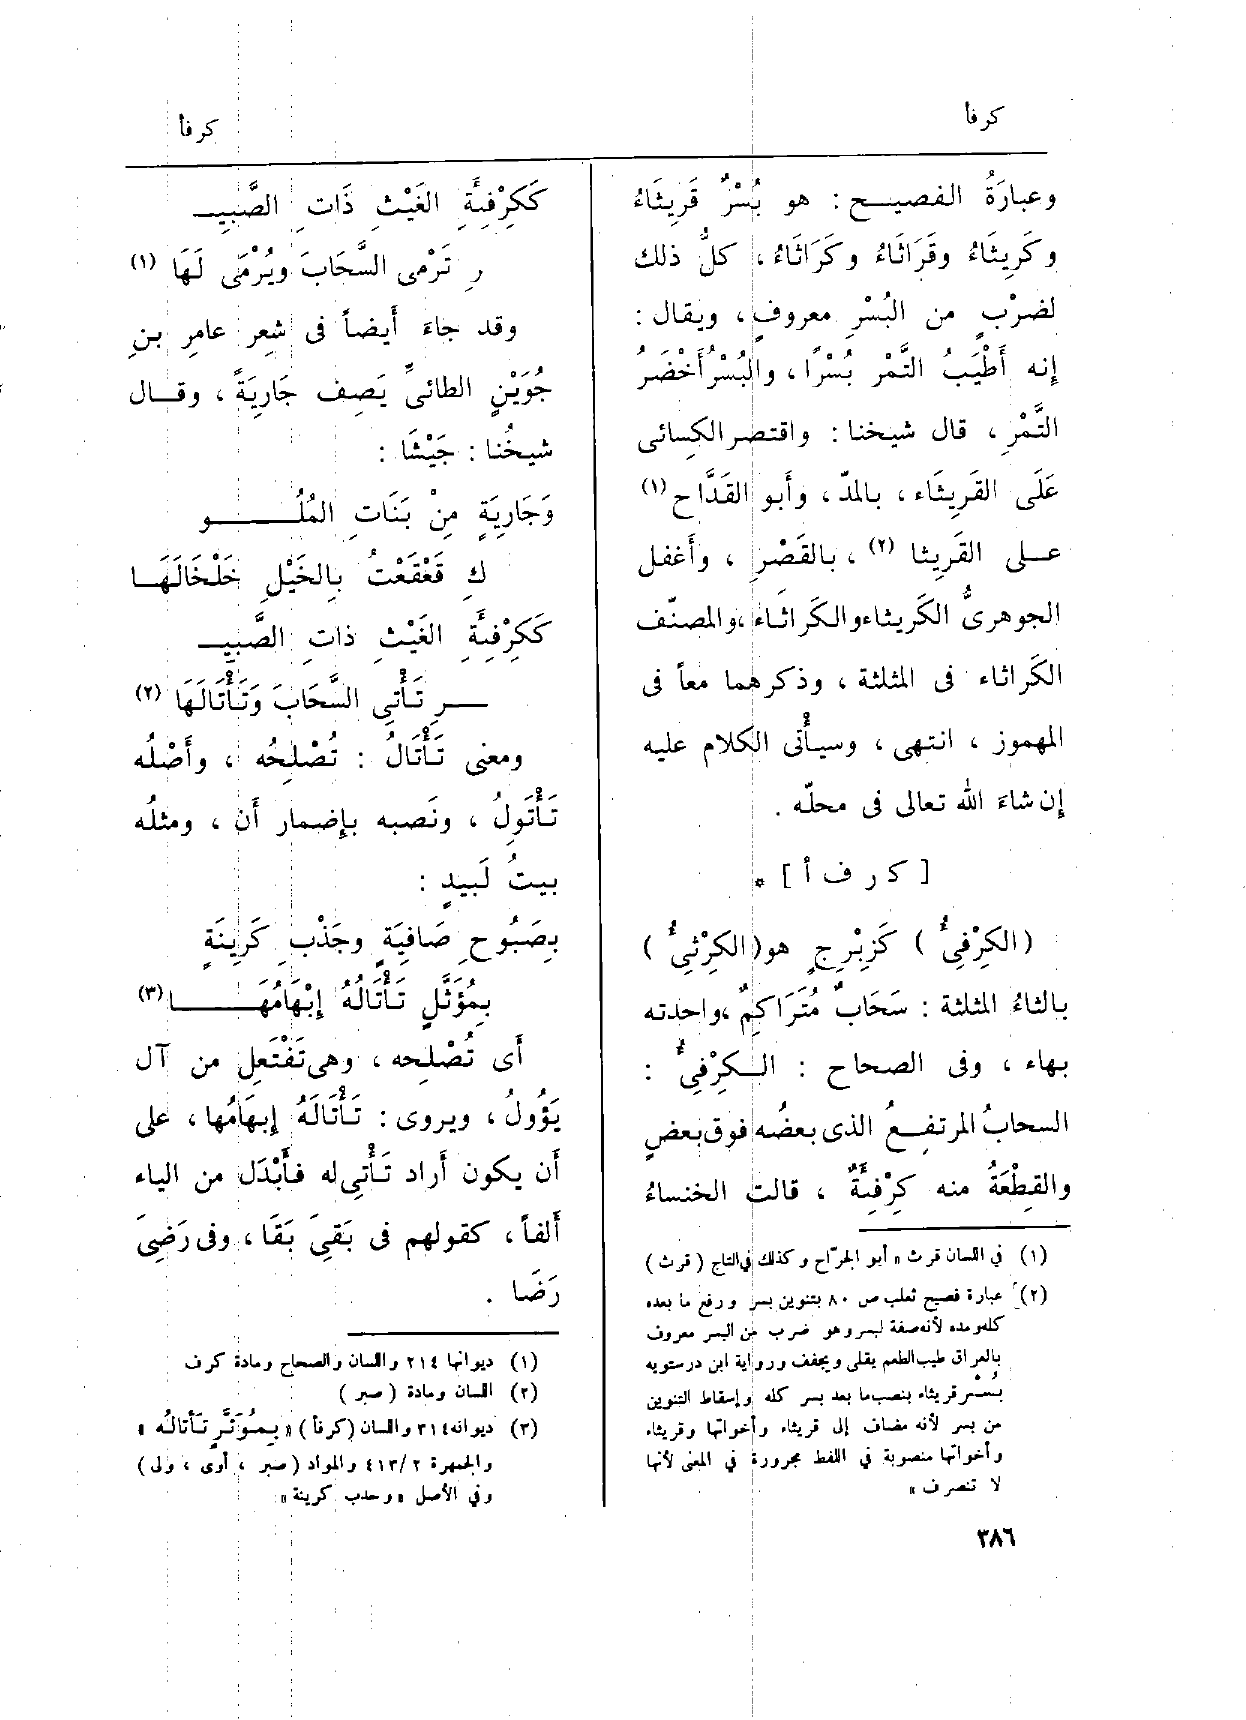 كرفأ
كرفأ
وعبارَةُ الفصيح : هو بُسْرٌ قَرِيثَاءُ
وكَرِيثَاءُ وقَرَاثَاءُ وكَرَاثَاءُ ، كلُّ ذلك
لضرْبٍ من البُسْرِ معروفٍ ، ويقال :
إنه أَطْيَبُ التَّمْرِ بُسْرًا ، والبُسْرُ أَخْضَرُ
التَّمْرِ ، قال شيخنا : واقتصر الكسائى
عَلَى القَرِيثَاء ، بالمدّ ، وأَبو القَدَّاحِ (١)
على القَرِيثا (٢) ، بالقَصْرِ ، وأَغفل
الجوهرىُّ الكَرِيثاء والكَرَاثَاءَ ، والمصنّف
الكَراثاء فى المثلثة ، وذكرهما معاً فى
المهموز ، انتهى ، وسيأْتى الكلام عليه
إن شاءَ الله تعالى فى محلّه .
[ ك ر ف أ ] *
( الكِرْفِئُ ) كَزِبْرِجٍ هو ( الكِرْثِئُ )
بالثاءُ المثلثة : سَحَابٌ مُتَرَاكِمٌ ، واحدته
بهاء ، وفى الصحاح : الكِرْفِئُ :
السحابُ المرتفعُ الذى بعضُه فوق بعضٍ
والقِطْعَةُ منه كِرْفِئَةٌ ، قالت الخنساءُ
(١) في اللسان قرث « أبو الجرّاح وكذلك في التاج ( قرث )
(٢) عبارة فصيح ثعلب ص ٨٠ بتنوين بسر ورفع ما بعده
كله ومده لأنه صفة لبسر وهو ضرب من البسر معروف
بالعراق طيب الطعم يقلى ويجفف ورواية ابن درستويه
بُسْر قريثاء بنصب ما بعد بسر كله وإسقاط التنوين
من بسر لأنه مضاف إلى قريثاء وأخواتها وقريثاء
وأخواتها منصوبة في اللفظ مجرورة في المعنى لأنها
لا تنصرف »
كَكِرْفِئَةِ الغَيْثِ ذَاتِ الصَّبِيـ
رِ تَرْمِى السَّحَابَ ويُرْمَى لَهَا (١)
وقد جاءَ أَيضاً فى شِعرِ عامرِ بنِ
جُوَيْنٍ الطائىِّ يَصِف جَارِيَةً ، وقال
شيخُنا : جَيْشًا :
وَجَارِيَةٍ مِنْ بَنَاتِ المُلُو
كِ قَعْقَعْتُ بِالخَيْلِ خَلْخَالَهَا
كَكِرْفِئَةِ الغَيْثِ ذاتِ الصَّبِيـ
ـرِ تَأْتِى السَّحَابَ وَتَأْتَالَهَا (٢)
ومعنى تَأْتَالُ : تُصْلِحُه ، وأَصْلُه
تَأْتَوِلُ ، ونَصبه بإِضمار أَن ، ومثلُه
بيتُ لَبيدٍ :
بِصَبُوحِ صَافِيَةٍ وجَذْبِ كَرِينَةٍ
بِمُؤَثَّلٍ تَأْتَالُهُ إِبْهَامُهَا (٣)
أَى تُصْلِحه ، وهى تَفْتَعِل من آل
يَؤُولُ ، ويروى : تَأْتَالَهُ إِبهَامُها ، على
أَن يكون أَراد تَأْتِى له فأَبْدَل من الياء
أَلفاً ، كقولهم فى بَقِىَ بَقَا ، وفى رَضِىَ
رَضَا .
(١) ديوانها ٢١٤ واللسان والصحاح ومادة كرف
(٢) اللسان ومادة ( صبر )
(٣) ديوانه ٣١٤ واللسان ( كرفأ ) « بِمُوَتَّرٍ تأتاله »
والجمهرة ٤١٣/٢ والمواد ( صبر ، أوى ، ولى )
وفي الأصل « وحدب كرينة »
٣٨٦